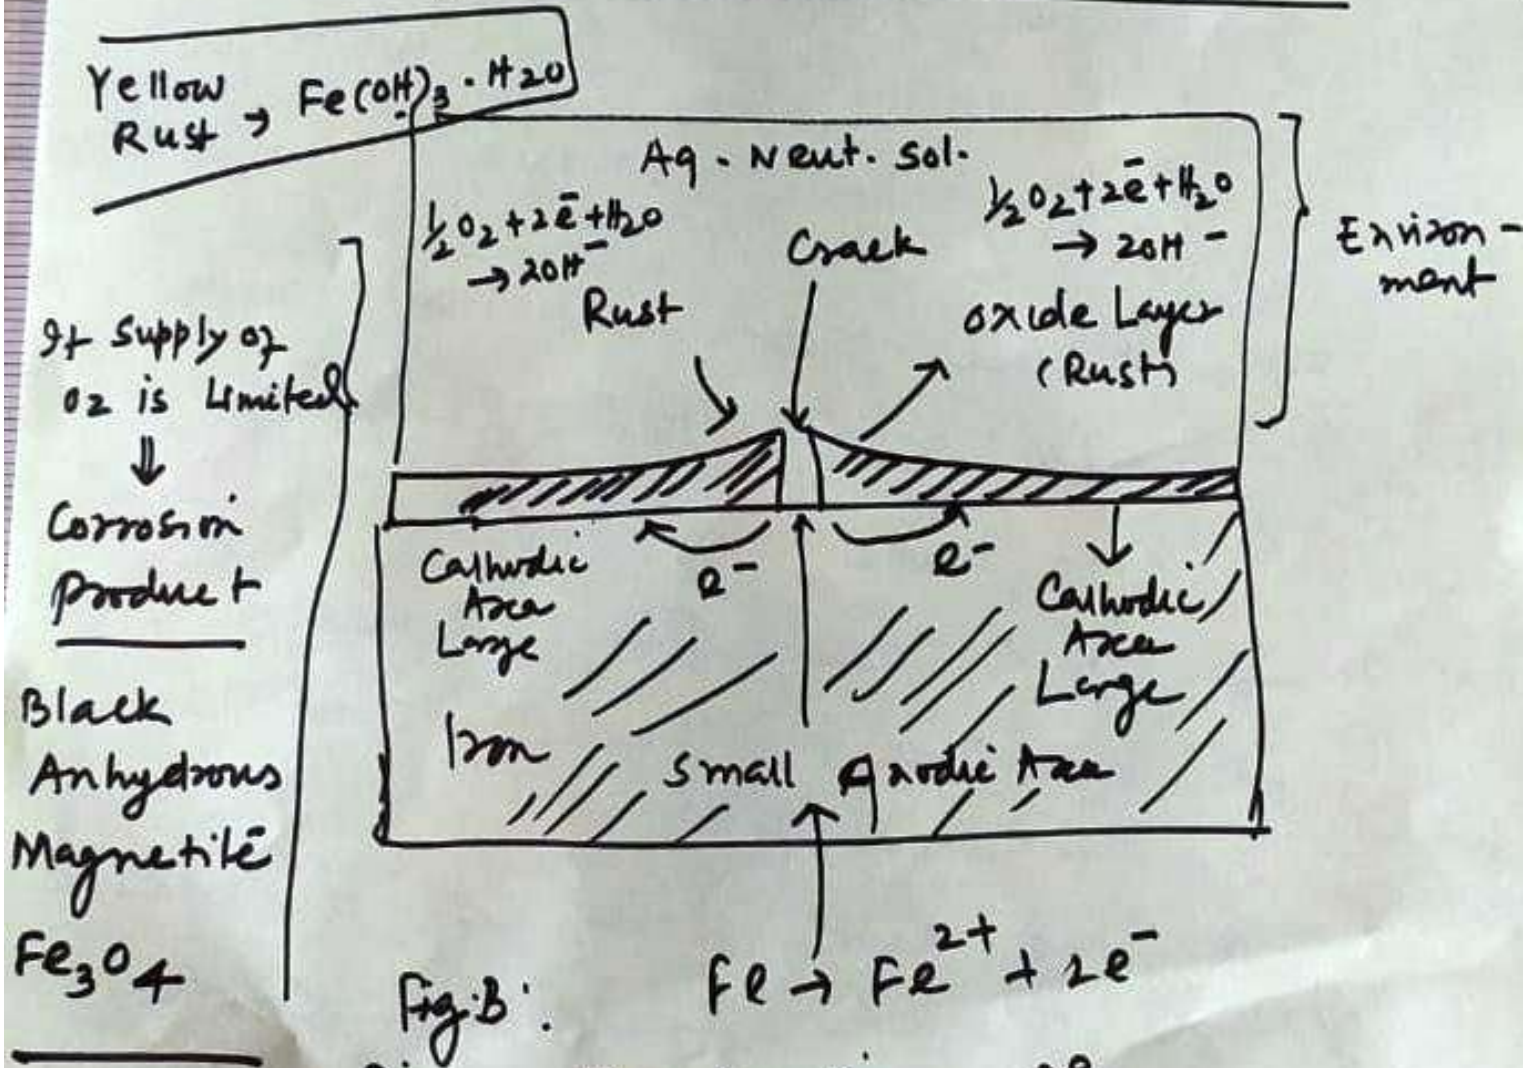 Yellow
Rust → Fe(OH)3 · H2O
Aq. Neut. Sol.
½O2 + 2ē + H2O
→ 2OH⁻
Rust
Crack
½O2 + 2ē + H2O
→ 2OH⁻
Oxide Layer
(Rust)
Environ-
ment
If supply of
O2 is Limited
⇓
Corrosion
Product
Black
Anhydrous
Magnetite
Fe3O4
Cathodic
Area
Large
e⁻
e⁻
Cathodic
Area
Large
Iron
Small Anodic Area
Fig.B:
Fe → Fe²⁺ + 2e⁻